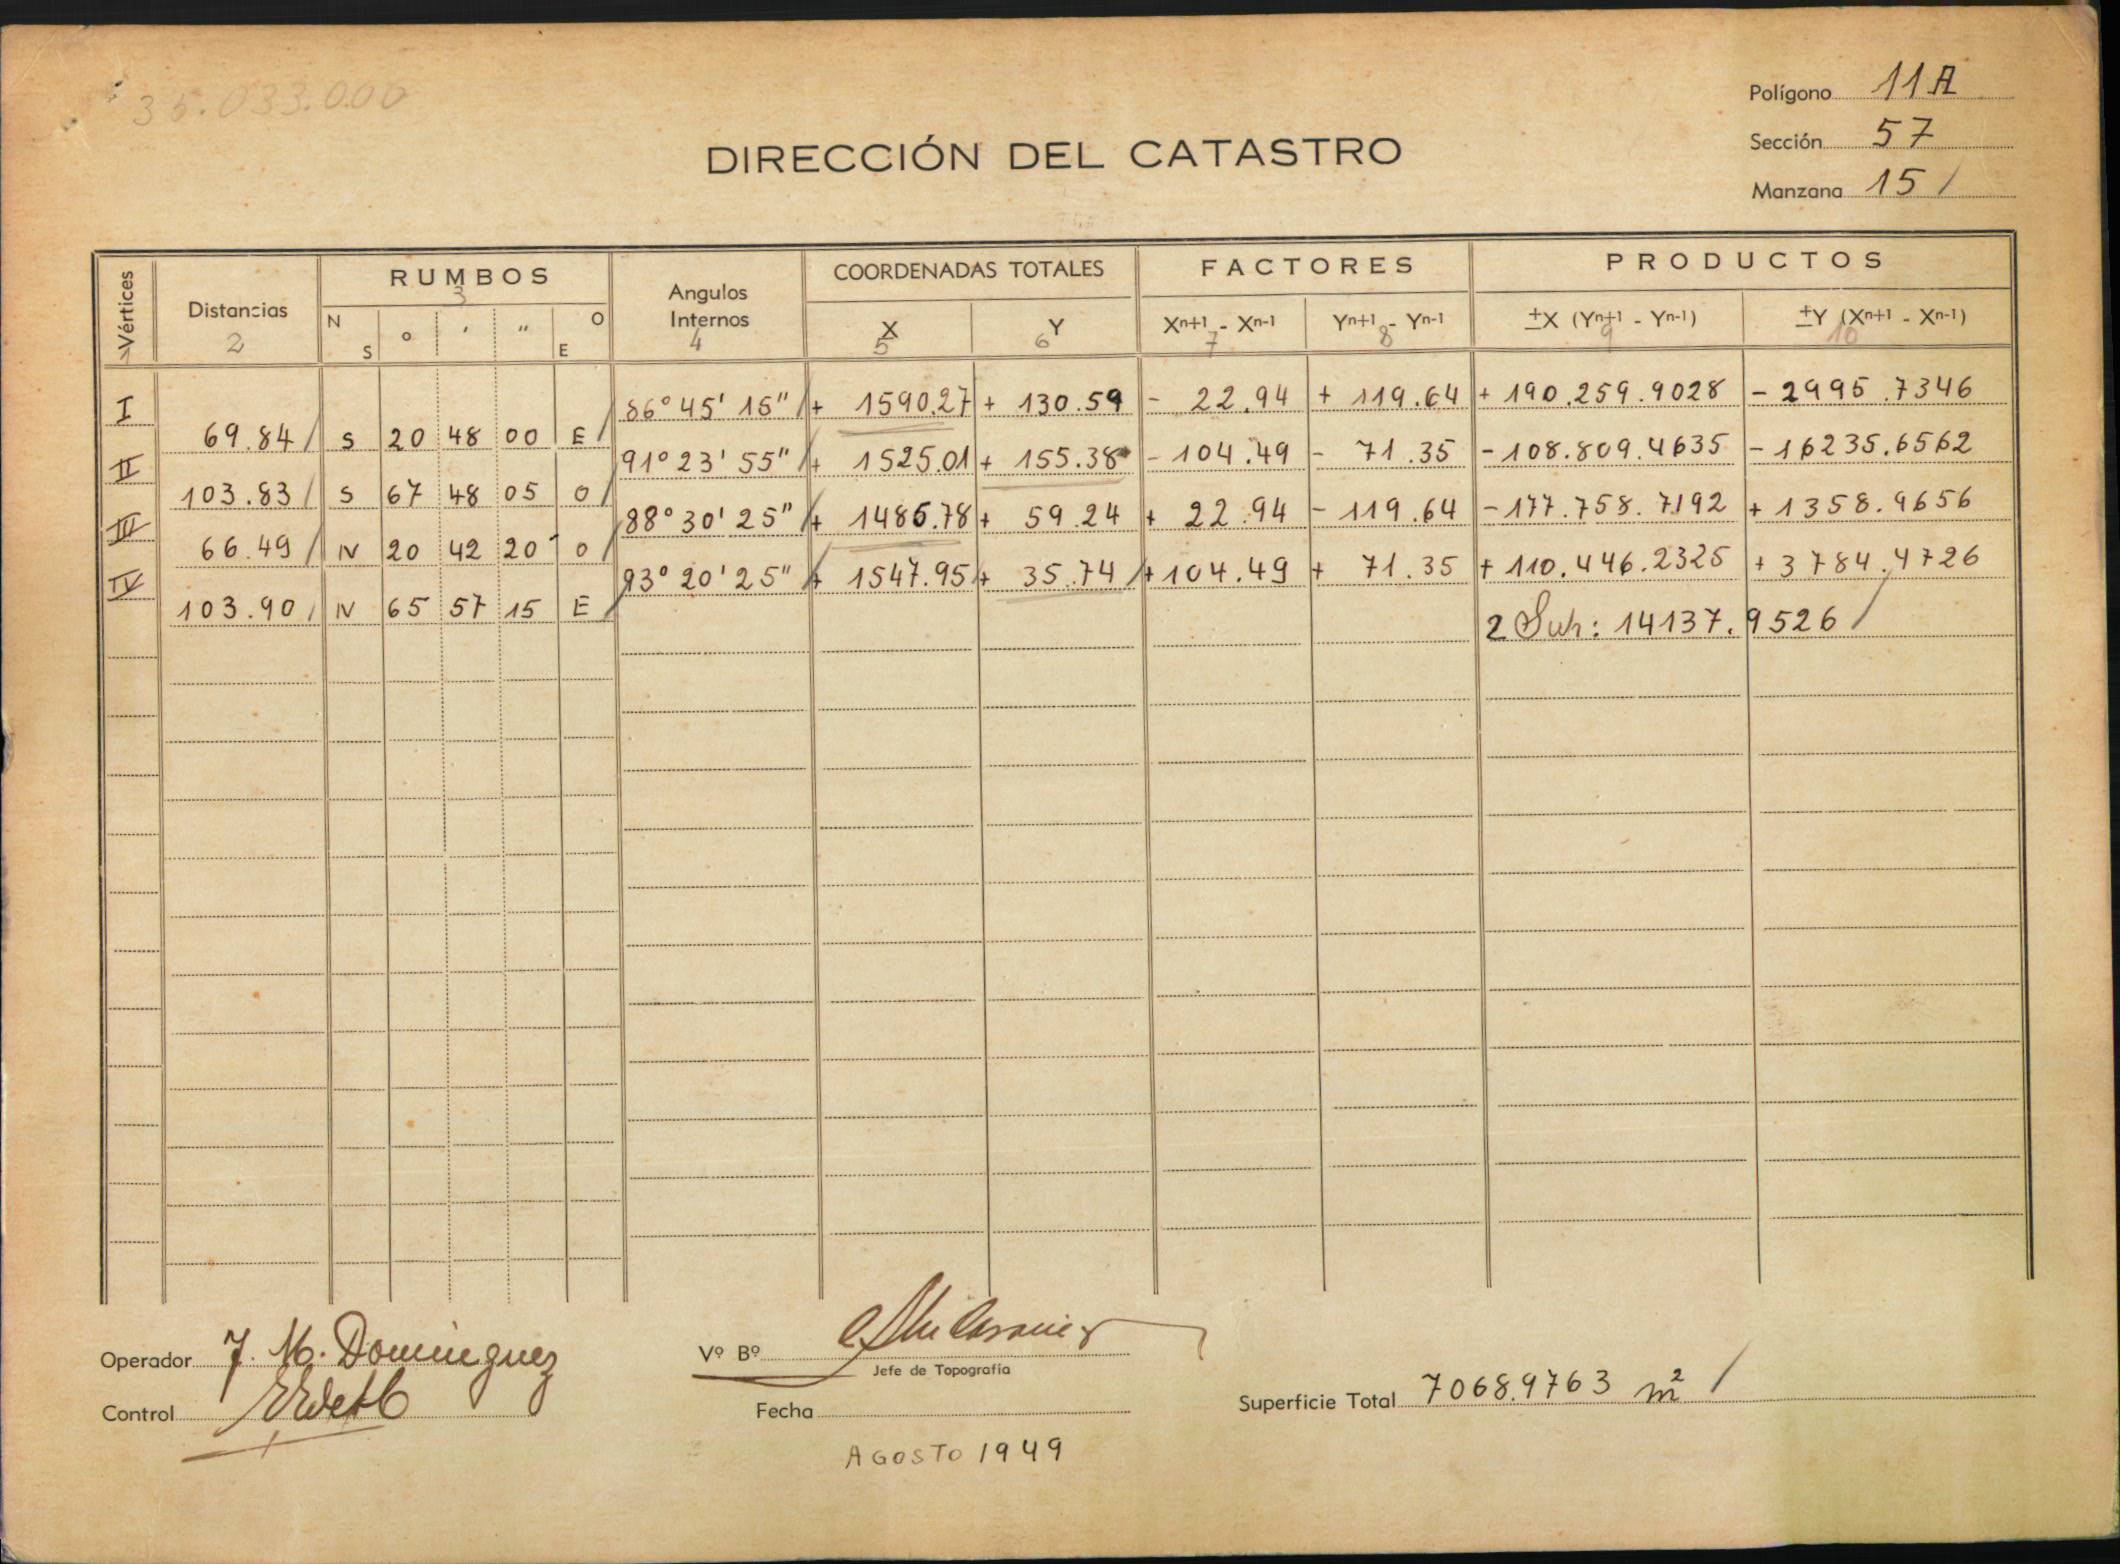 35.033.000
Polígono 11A
Sección 57
Manzana 15 /
DIRECCIÓN DEL CATASTRO
Vértices Distancias RUMBOS Angulos Internos COORDENADAS TOTALES FACTORES PRODUCTOS
N S ° ' " O E X Y Xn+1 - Xn-1 Yn+1 - Yn-1 ±X (Yn+1 - Yn-1) ±Y (Xn+1 - Xn-1)
1 2 3 4 5 6 7 8 9 10
I 86° 45' 15" + 1590.27 + 130.59 - 22.94 + 119.64 + 190.259.9028 - 2995.7346
69.84 / S 20 48 00 E /
II 91° 23' 55" + 1525.01 + 155.38 - 104.49 - 71.35 - 108.809.4635 - 16235.6562
103.83 / S 67 48 05 O /
III 88° 30' 25" + 1485.78 + 59.24 + 22.94 - 119.64 - 177.758.7192 + 1358.9656
66.49 / N 20 42 20 O /
IV 93° 20' 25" + 1547.95 + 35.74 + 104.49 + 71.35 + 110.446.2325 + 3784.4726
103.90 / N 65 57 15 E /
2 Sup: 14137.9526 /
Operador J. M. Dominguez
Control
Vº Bº
Jefe de Topografía
Fecha
AGOSTO 1949
Superficie Total 7068.9763 m² /